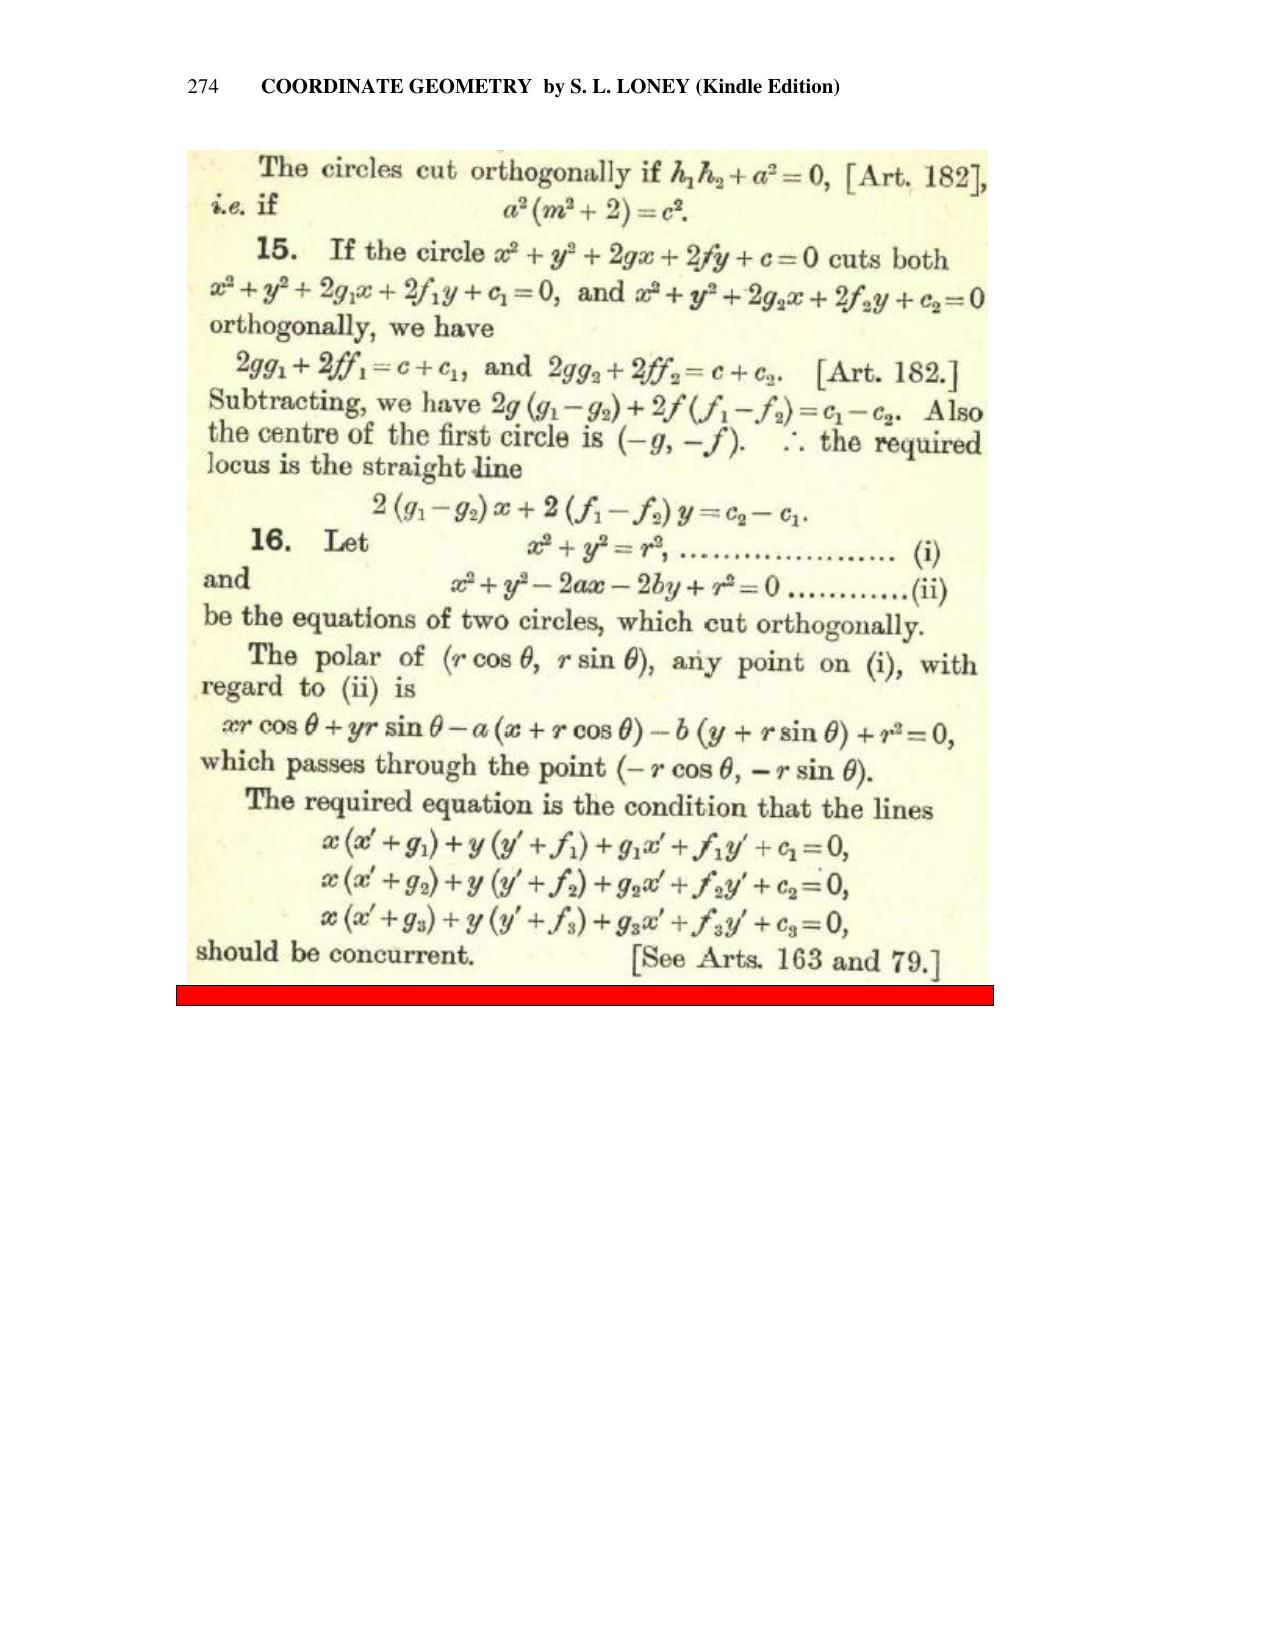 274 COORDINATE GEOMETRY by S. L. LONEY (Kindle Edition)
The circles cut orthogonally if h₁h₂ + a² = 0, [Art. 182],
i.e. if a² (m² + 2) = c².
15. If the circle x² + y² + 2gx + 2fy + c = 0 cuts both
x² + y² + 2g₁x + 2f₁y + c₁ = 0, and x² + y² + 2g₂x + 2f₂y + c₂ = 0
orthogonally, we have
2gg₁ + 2ff₁ = c + c₁, and 2gg₂ + 2ff₂ = c + c₂. [Art. 182.]
Subtracting, we have 2g (g₁ − g₂) + 2f (f₁ − f₂) = c₁ − c₂. Also
the centre of the first circle is (−g, −f). ∴ the required
locus is the straight line
2 (g₁ − g₂) x + 2 (f₁ − f₂) y = c₂ − c₁.
16. Let x² + y² = r², ..................... (i)
and x² + y² − 2ax − 2by + r² = 0 ............(ii)
be the equations of two circles, which cut orthogonally.
The polar of (r cos θ, r sin θ), any point on (i), with
regard to (ii) is
xr cos θ + yr sin θ − a (x + r cos θ) − b (y + r sin θ) + r² = 0,
which passes through the point (− r cos θ, − r sin θ).
The required equation is the condition that the lines
x (x′ + g₁) + y (y′ + f₁) + g₁x′ + f₁y′ + c₁ = 0,
x (x′ + g₂) + y (y′ + f₂) + g₂x′ + f₂y′ + c₂ = 0,
x (x′ + g₃) + y (y′ + f₃) + g₃x′ + f₃y′ + c₃ = 0,
should be concurrent. [See Arts. 163 and 79.]